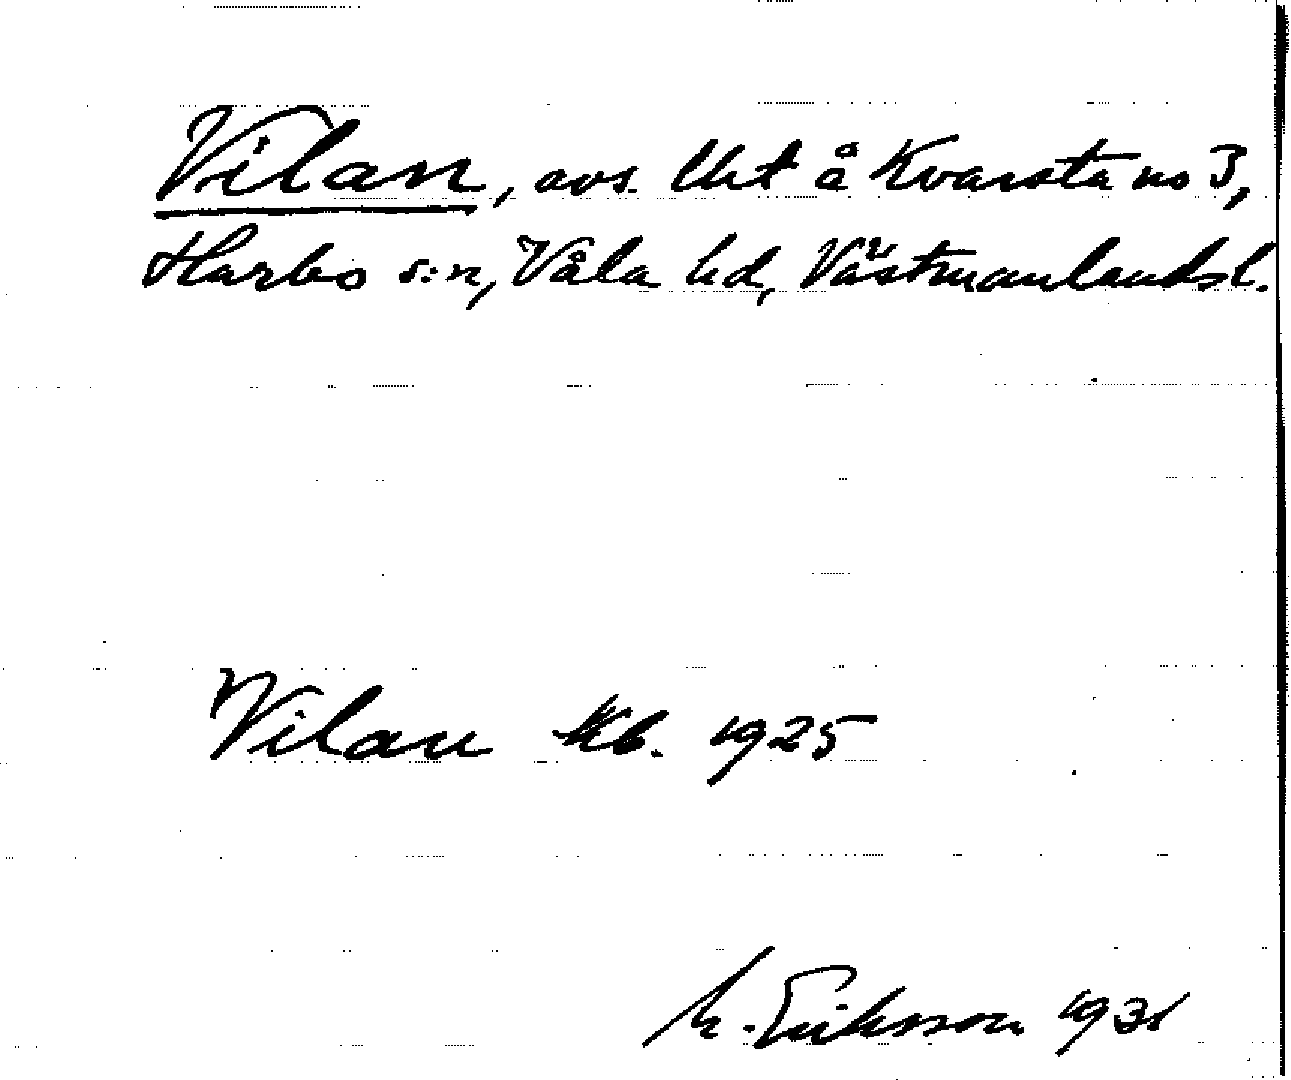 Vilan, avs. lht å Kvarsta no 3,
Harbo s:n, Våla hd, Västmanlandsl.
Vilan Kb. 1925
M. Eriksson 1931